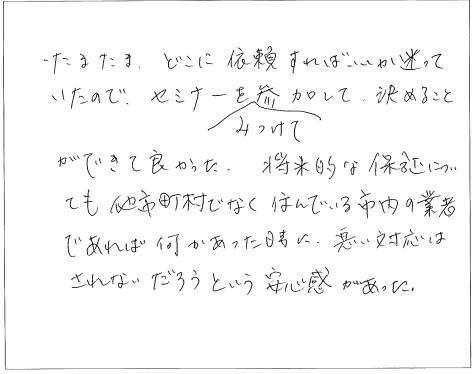 たまたま、どこに依頼すればいいか迷って
いたので、セミナーを参加して、決めること
みつけて
ができて良かった。将来的な保証につい
ても他市町村でなく住んでいる市内の業者
であれば何かあった時に、悪い対応は
されないだろうという安心感があった。